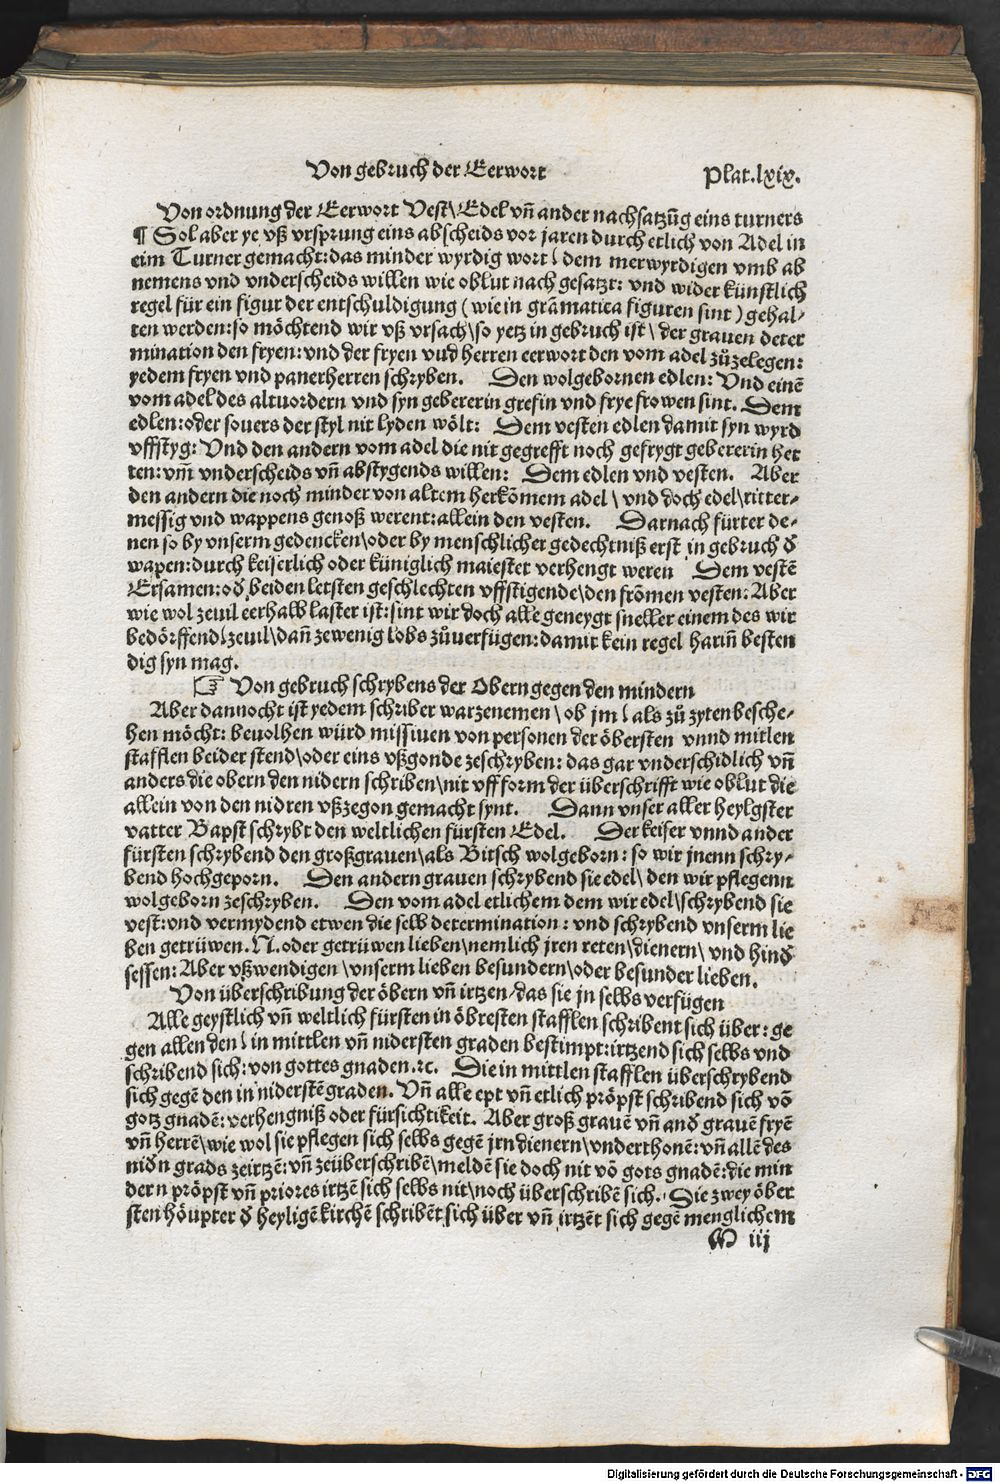 Von gebruch der Eerwort Plat.lxix.
Von ordnung der Eerwort Vest\ Edel vñ ander nachsatzũg eins turners
¶ Sol aber ye vß vrsprung eins abscheids vor jaren durch etlich von Adel in
eim Turner gemacht: das minder wyrdig wort \ dem merwyrdigen vmb ab
nemens vnd vnderscheids willen wie oblut nach gesatzt: vnd wider künstlich
regel für ein figur der entschuldigung (wie in grãmatica figuren sint) gehal⸗
ten werden: so möchtend wir vß vrsach\ so yetz in gebruch ist\ der grauen deter
mination den fryen: vnd der fryen vnd herren eerwort den vom adel zůzelegen:
yedem fryen vnd panerherren schryben. Den wolgebornen edlen: Vnd einẽ
vom adel des altuordern vnd syn gebererin grefin vnd frye frowen sint. Dem
edlen: oder souers der styl nit lyden wölt: Dem vesten edlen damit syn wyrd
vffstyg: Vnd den andern vom adel die nit gegrefft noch gefrygt gebererin het
ten: vm̃ vnderscheids vñ abstygends willen: Dem edlen vnd vesten. Aber
den andern die noch minder von altem herkõmem adel \ vnd doch edel\ ritter⸗
messig vnd wappens genoß werent: allein den vesten. Darnach fürter de⸗
nen so by vnserm gedencken\ oder by menschlicher gedechtniß erst in gebruch d̕
wapen: durch keiserlich oder küniglich maiestet verhengt weren Dem vestẽ
Ersamen: od̕ beiden letsten geschlechten vffstigende\ den frõmen vesten: Aber
wie wol zeuil eerhalb laster ist: sint wir doch alle geneygt sneller einem des wir
bedörffend\ zeuil\ dañ zewenig lobs zůuerfügen: damit kein regel hariñ besten
dig syn mag.
☞ Von gebruch schrybens der Obern gegen den mindern
Aber dannocht ist yedem schriber warzenemen \ ob jm \ als zů zyten besche⸗
hen möcht: beuolhen würd missiuen von personen der öbersten vnnd mitlen
stafflen beider stend\ oder eins vßgonde zeschryben: das gar vnderschidlich vñ
anders die obern den nidern schriben\ nit vff form der überschrifft wie oblut die
allein von den nidren vßzegon gemacht synt. Dann vnser aller heylgster
vatter Bapst schrybt den weltlichen fürsten Edel. Der keiser vnnd ander
fürsten schrybend den großgrauen\ als Bitsch wolgeborn: so wir jnenn schry⸗
bend hochgeporn. Den andern grauen schrybend sie edel\ den wir pflegenn
wolgeborn zeschryben. Den vom adel etlichem dem wir edel\ schrybend sie
vest: vnd vermydend etwen die selb determination: vnd schrybend vnserm lie
ben getrüwen. N. oder getrüwen lieben\ nemlich jren reten\ dienern\ vnd hind̕
sessen: Aber vßwendigen \ vnserm lieben besundern\ oder besunder lieben.
Von überschribung der öbern vñ irtzen⸗ das sie jn selbs verfügen
Alle geystlich vñ weltlich fürsten in öbresten stafflen schribent sich über: ge
gen allen den \ in mittlen vñ nidersten graden bestimpt: irtzend sich selbs vnd
schribend sich: von gottes gnaden. ꝛc. Die in mittlen stafflen überschrybend
sich gegẽ den in niderstẽ graden. Vñ alle ept vñ etlich pröpst schribend sich võ
gotz gnadẽ: verhengniß oder fürsichtikeit. Aber groß grauẽ vñ and̕ grauẽ fryẽ
vñ herrẽ\ wie wol sie pflegen sich selbs gegẽ jrn dienern\ vnderthonẽ: vñ allẽ des
nid̕n grads zeirtzẽ: vñ zeüberschribẽ\ meldẽ sie doch nit võ gots gnadẽ: die min
dern pröpst vñ priores irtzẽ sich selbs nit\ noch überschribẽ sich. Die zwey öber
sten höupter d̕ heyligẽ kirchẽ schribẽt sich über vñ irtzẽt sich gegẽ menglichem
M iij
Digitalisierung gefördert durch die Deutsche Forschungsgemeinschaft - DFG